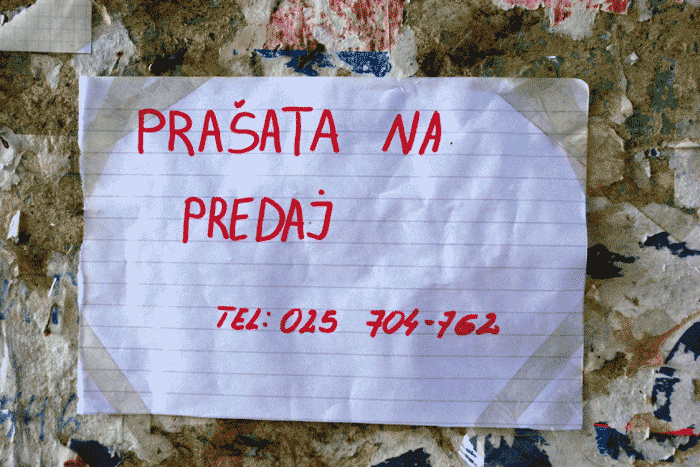 PRAŠATA NA
PREDAJ
TEL: 025 704-762